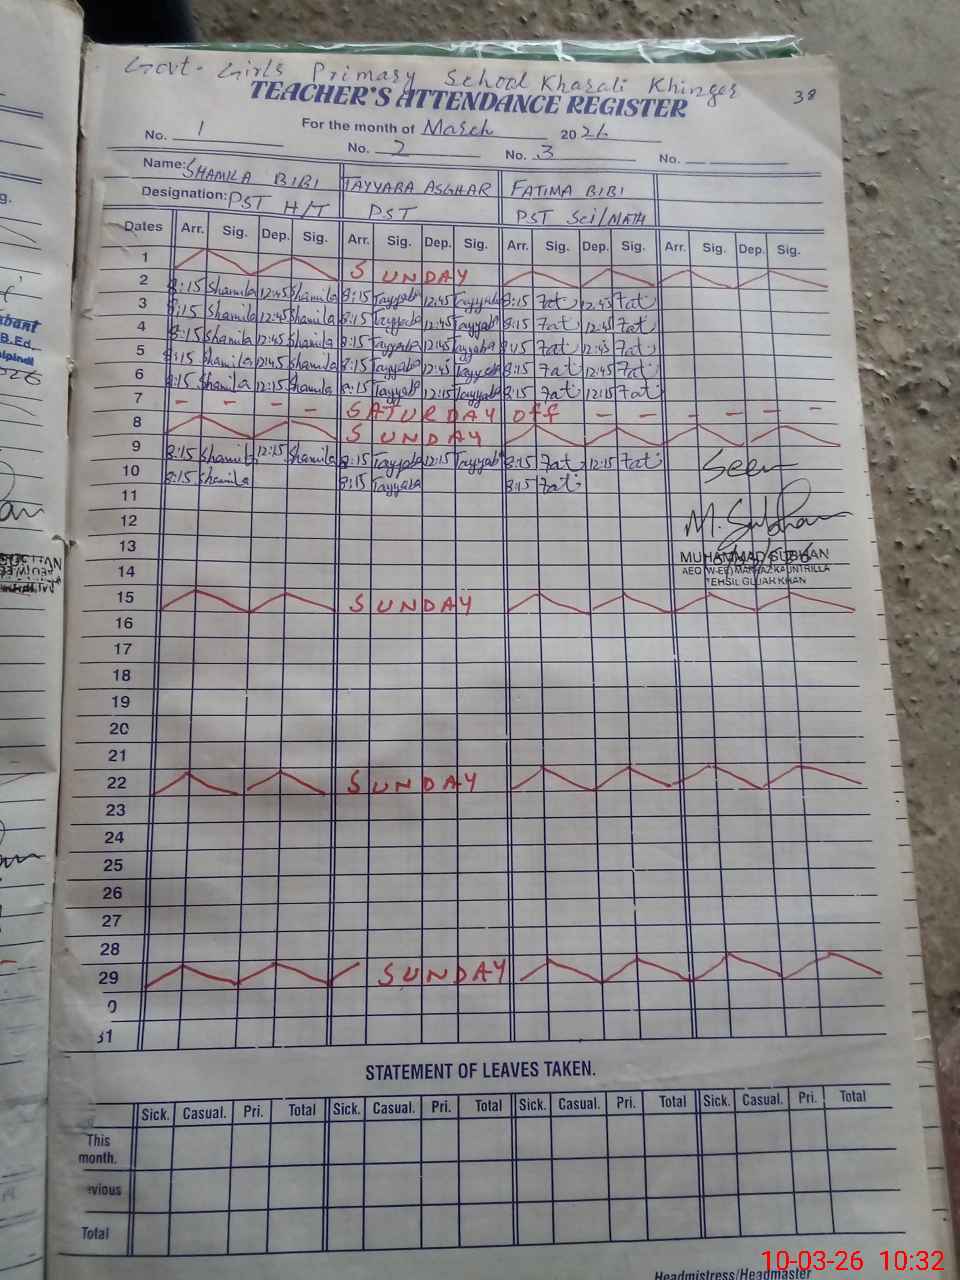 Govt. Girls Primary School Kharali Khinger
TEACHER'S ATTENDANCE REGISTER 38
For the month of March 2026
No. 1 No. 2 No. 3 No.
Name: SHAMILA BIBI TAYYABA ASGHAR FATIMA BIBI
Designation: PST H/T PST PST Sci/MATH
Dates Arr. Sig. Dep. Sig. Arr. Sig. Dep. Sig. Arr. Sig. Dep. Sig. Arr. Sig. Dep. Sig.
1 SUNDAY
2 8:15 Shamila 12:45 Shamila 8:15 Tayyaba 12:45 Tayyaba 8:15 Fat 12:45 Fat
3 8:15 Shamila 12:45 Shamila 8:15 Tayyaba 12:45 Tayyaba 8:15 Fat 12:45 Fat
4 8:15 Shamila 12:45 Shamila 8:15 Tayyaba 12:45 Tayyaba 8:15 Fat 12:45 Fat
5 8:15 Shamila 12:45 Shamila 8:15 Tayyaba 12:45 Tayyaba 8:15 Fat 12:45 Fat
6 8:15 Shamila 12:15 Shamila 8:15 Tayyaba 12:15 Tayyaba 8:15 Fat 12:15 Fat
7 - - - - SATURDAY OFF - - - - - -
8 SUNDAY
9 8:15 Shamila Shamila 8:15 Tayyaba 12:15 Tayyaba 8:15 Fat 12:15 Fat Seen
10 8:15 Shamila 8:15 Tayyaba 8:15 Fat
11
12 M. Subhan
13 MUHAMMAD SUBHAN
14 AEO (W-EE) MARKAZ KAUNTRILLA
TEHSIL GUJAR KHAN
15 SUNDAY
16
17
18
19
20
21
22 SUNDAY
23
24
25
26
27
28
29 SUNDAY
0
31
STATEMENT OF LEAVES TAKEN.
Sick. Casual. Pri. Total Sick. Casual. Pri. Total Sick. Casual. Pri. Total Sick. Casual. Pri. Total
This
month.
vious
Total
Headmistress/Headmaster
10-03-26 10:32